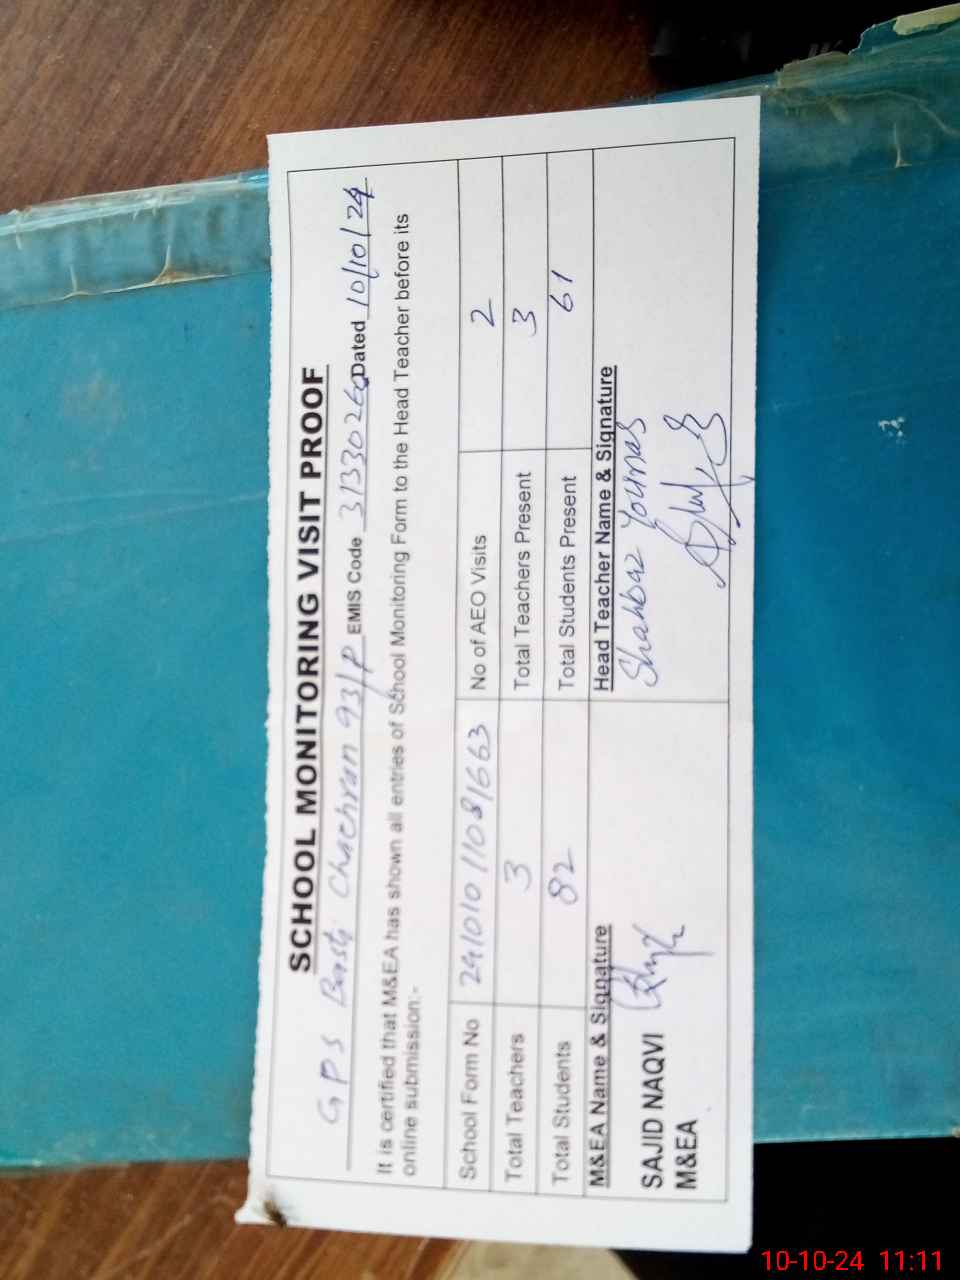 SCHOOL MONITORING VISIT PROOF
GPS Basti Chachran 93/P EMIS Code 31330260 Dated 10/10/24
It is certified that M&EA has shown all entries of School Monitoring Form to the Head Teacher before its
online submission:-
School Form No 241010 11081663 No of AEO Visits 2
Total Teachers 3 Total Teachers Present 3
Total Students 82 Total Students Present 61
M&EA Name & Signature Head Teacher Name & Signature
Shahbaz Younas
SAJID NAQVI
M&EA
10-10-24 11:11